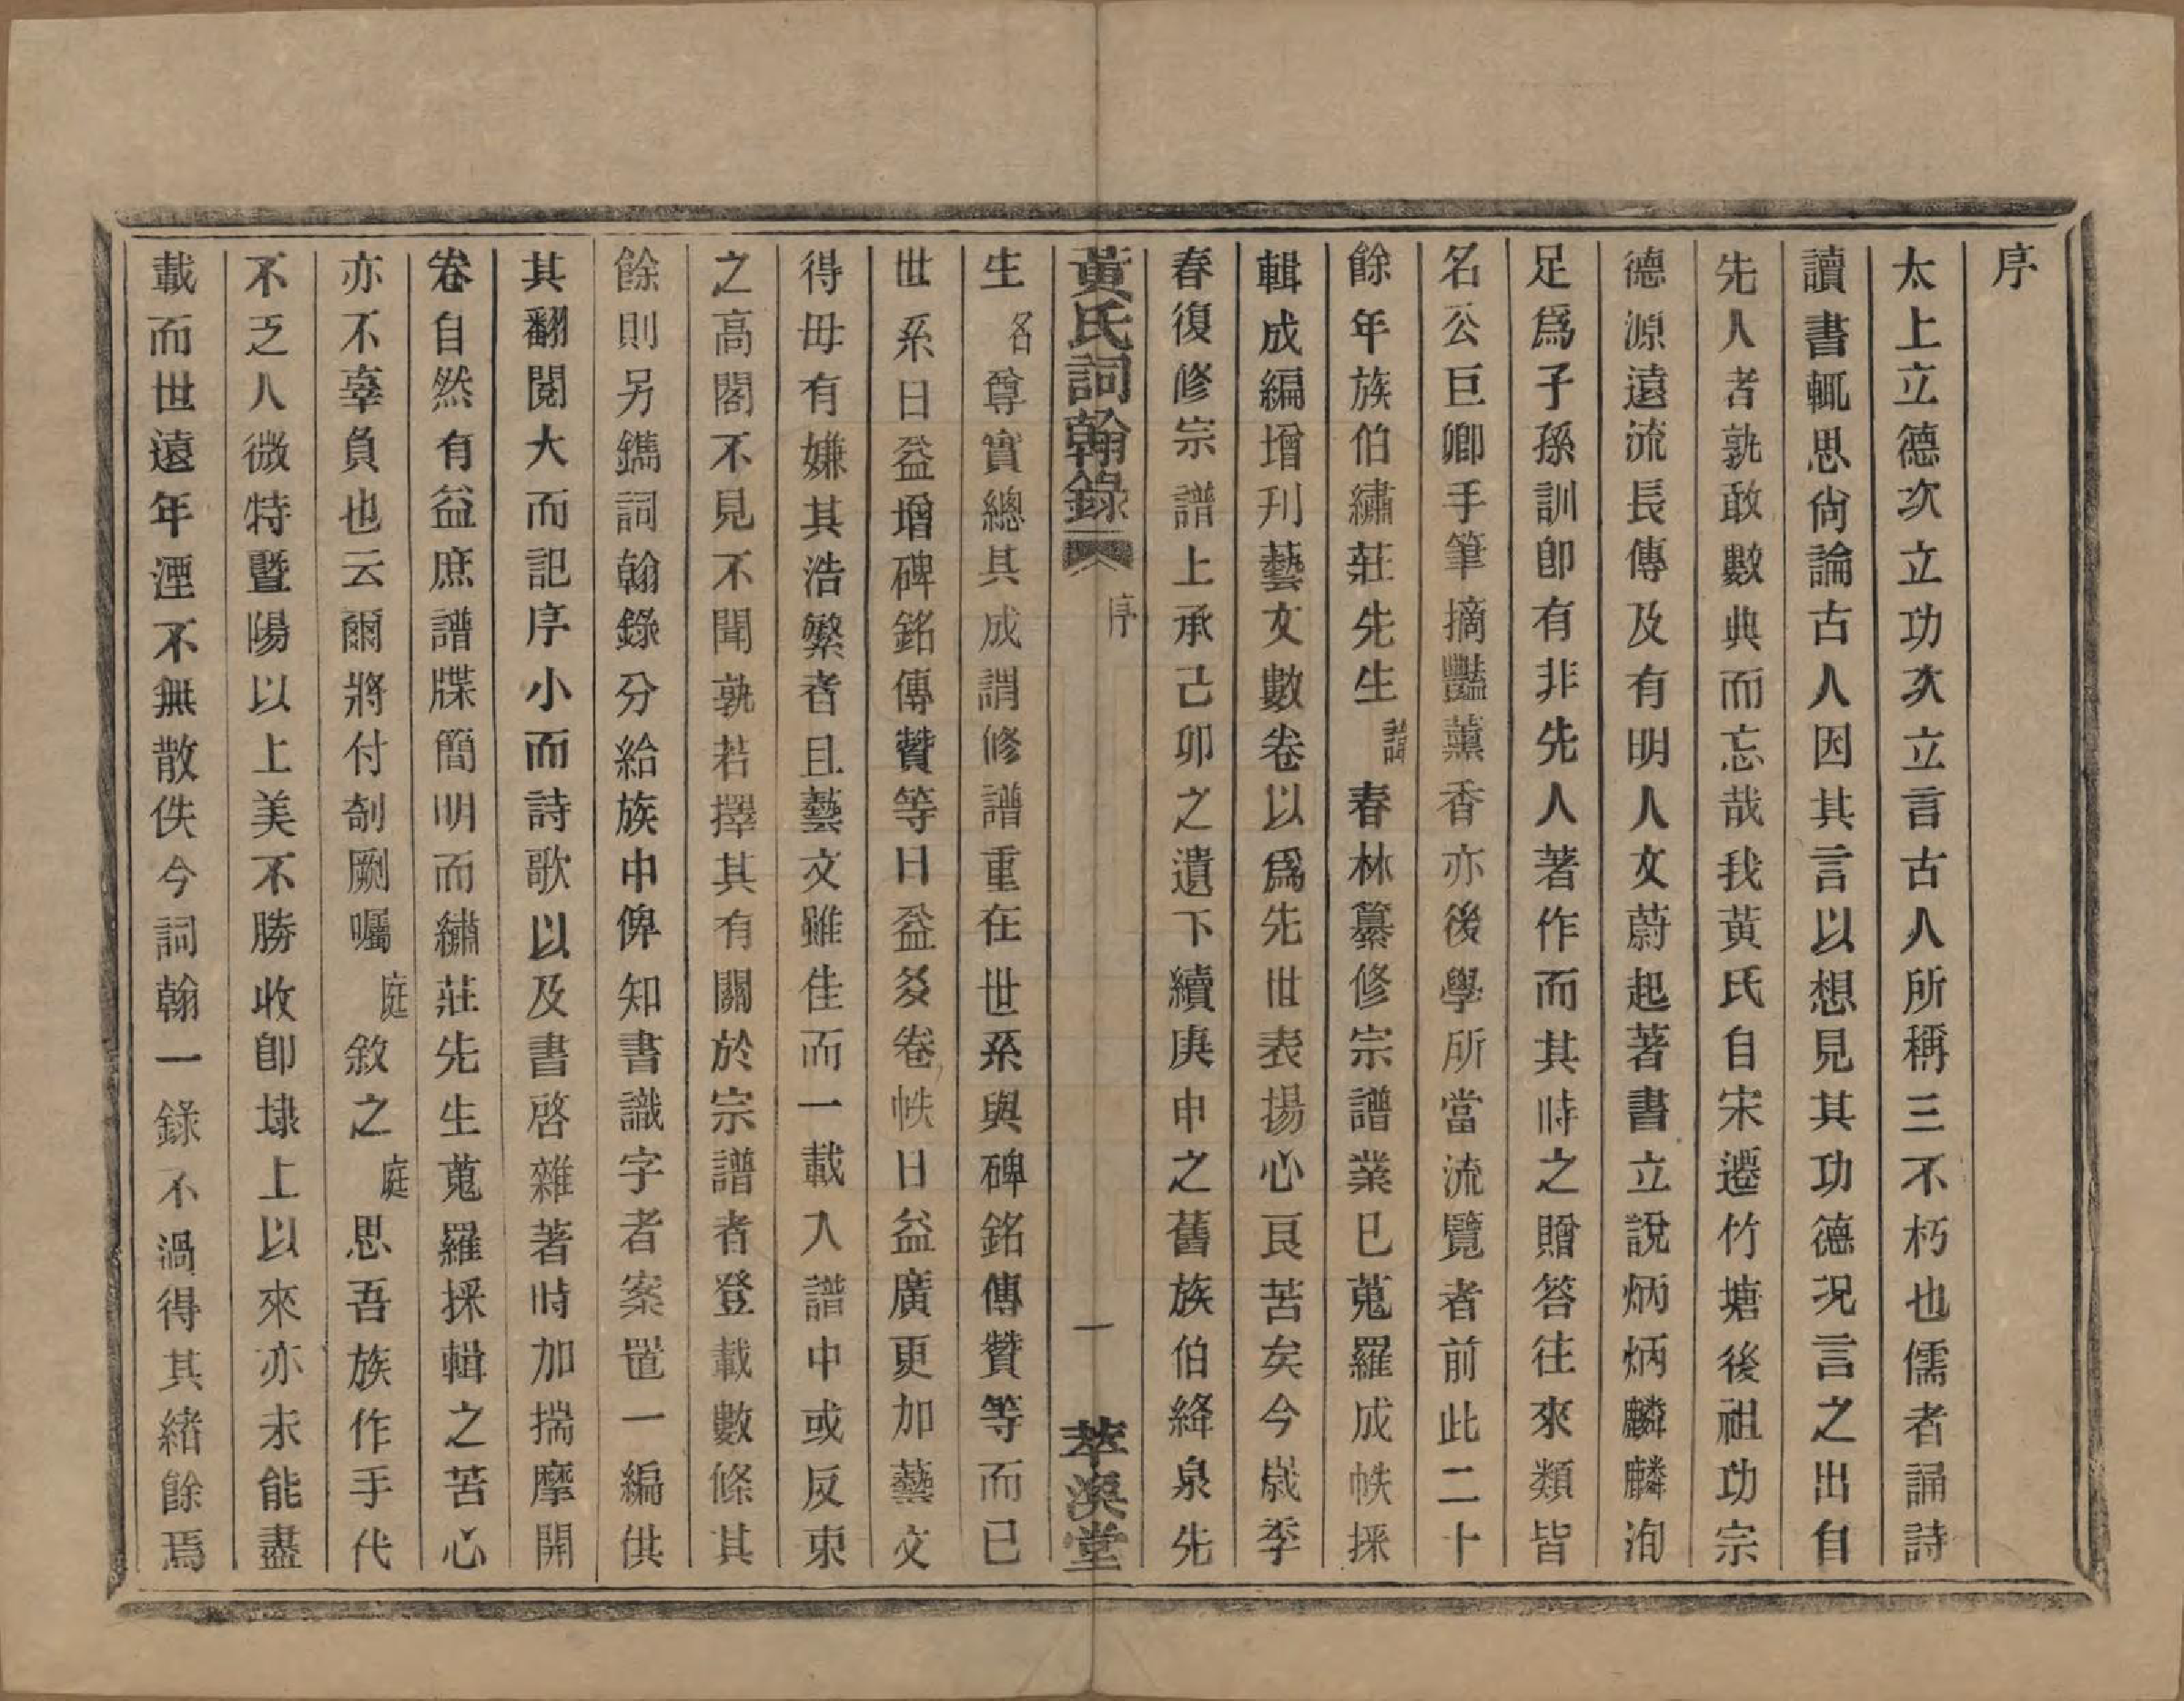 序
太上立德次次立功次立言古人所稱三不朽也儒者誦詩
讀書輒思尙論古人因其言以想見其功德況言之出自
先人者孰敢數典而忘哉我黃氏自宋遷竹塘後祖功宗
德源遠流長傳及有明人文蔚起著書立說炳炳麟麟洵
足爲子孫訓卽有非先人著作而其時之贈答往來類皆
名公巨卿手筆摘豔薰香亦後學所當流覽者前此二十
餘年族伯繡莊先生諱春林纂修宗譜業已蒐羅成帙採
輯成編增刋藝文數卷以爲先世表揚心良苦矣今歲季
春復修宗譜上承己卯之遺下續庚申之舊族伯絳泉先
黃氏詞翰錄 序 一 萃渙堂
生各尊實總其成謂修譜重在世系與碑銘傳贊等而已
世系日益增碑銘傳贊等日益多卷帙日益廣更加藝文
得毋有嫌其浩繁者且藝文雖佳而一載入譜中或反束
之高閣不見不聞孰若擇其有關於宗譜者登載數條其
餘則另鐫詞翰錄分給族中俾知書識字者案置一編供
其翻閱大而記序小而詩歌以及書啓雜著時加揣摩開
卷自然有益庶譜牒簡明而繡莊先生蒐羅採輯之苦心
亦不辜負也云爾將付剞劂囑庭敘之庭思吾族作手代
不乏人微特暨陽以上美不勝收卽埭上以來亦未能盡
載而世遠年湮不無散佚今詞翰一錄不過得其緒餘焉